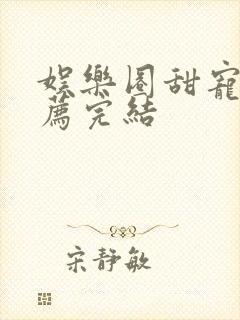 娛樂圈甜寵
薦完結
宋靜敏